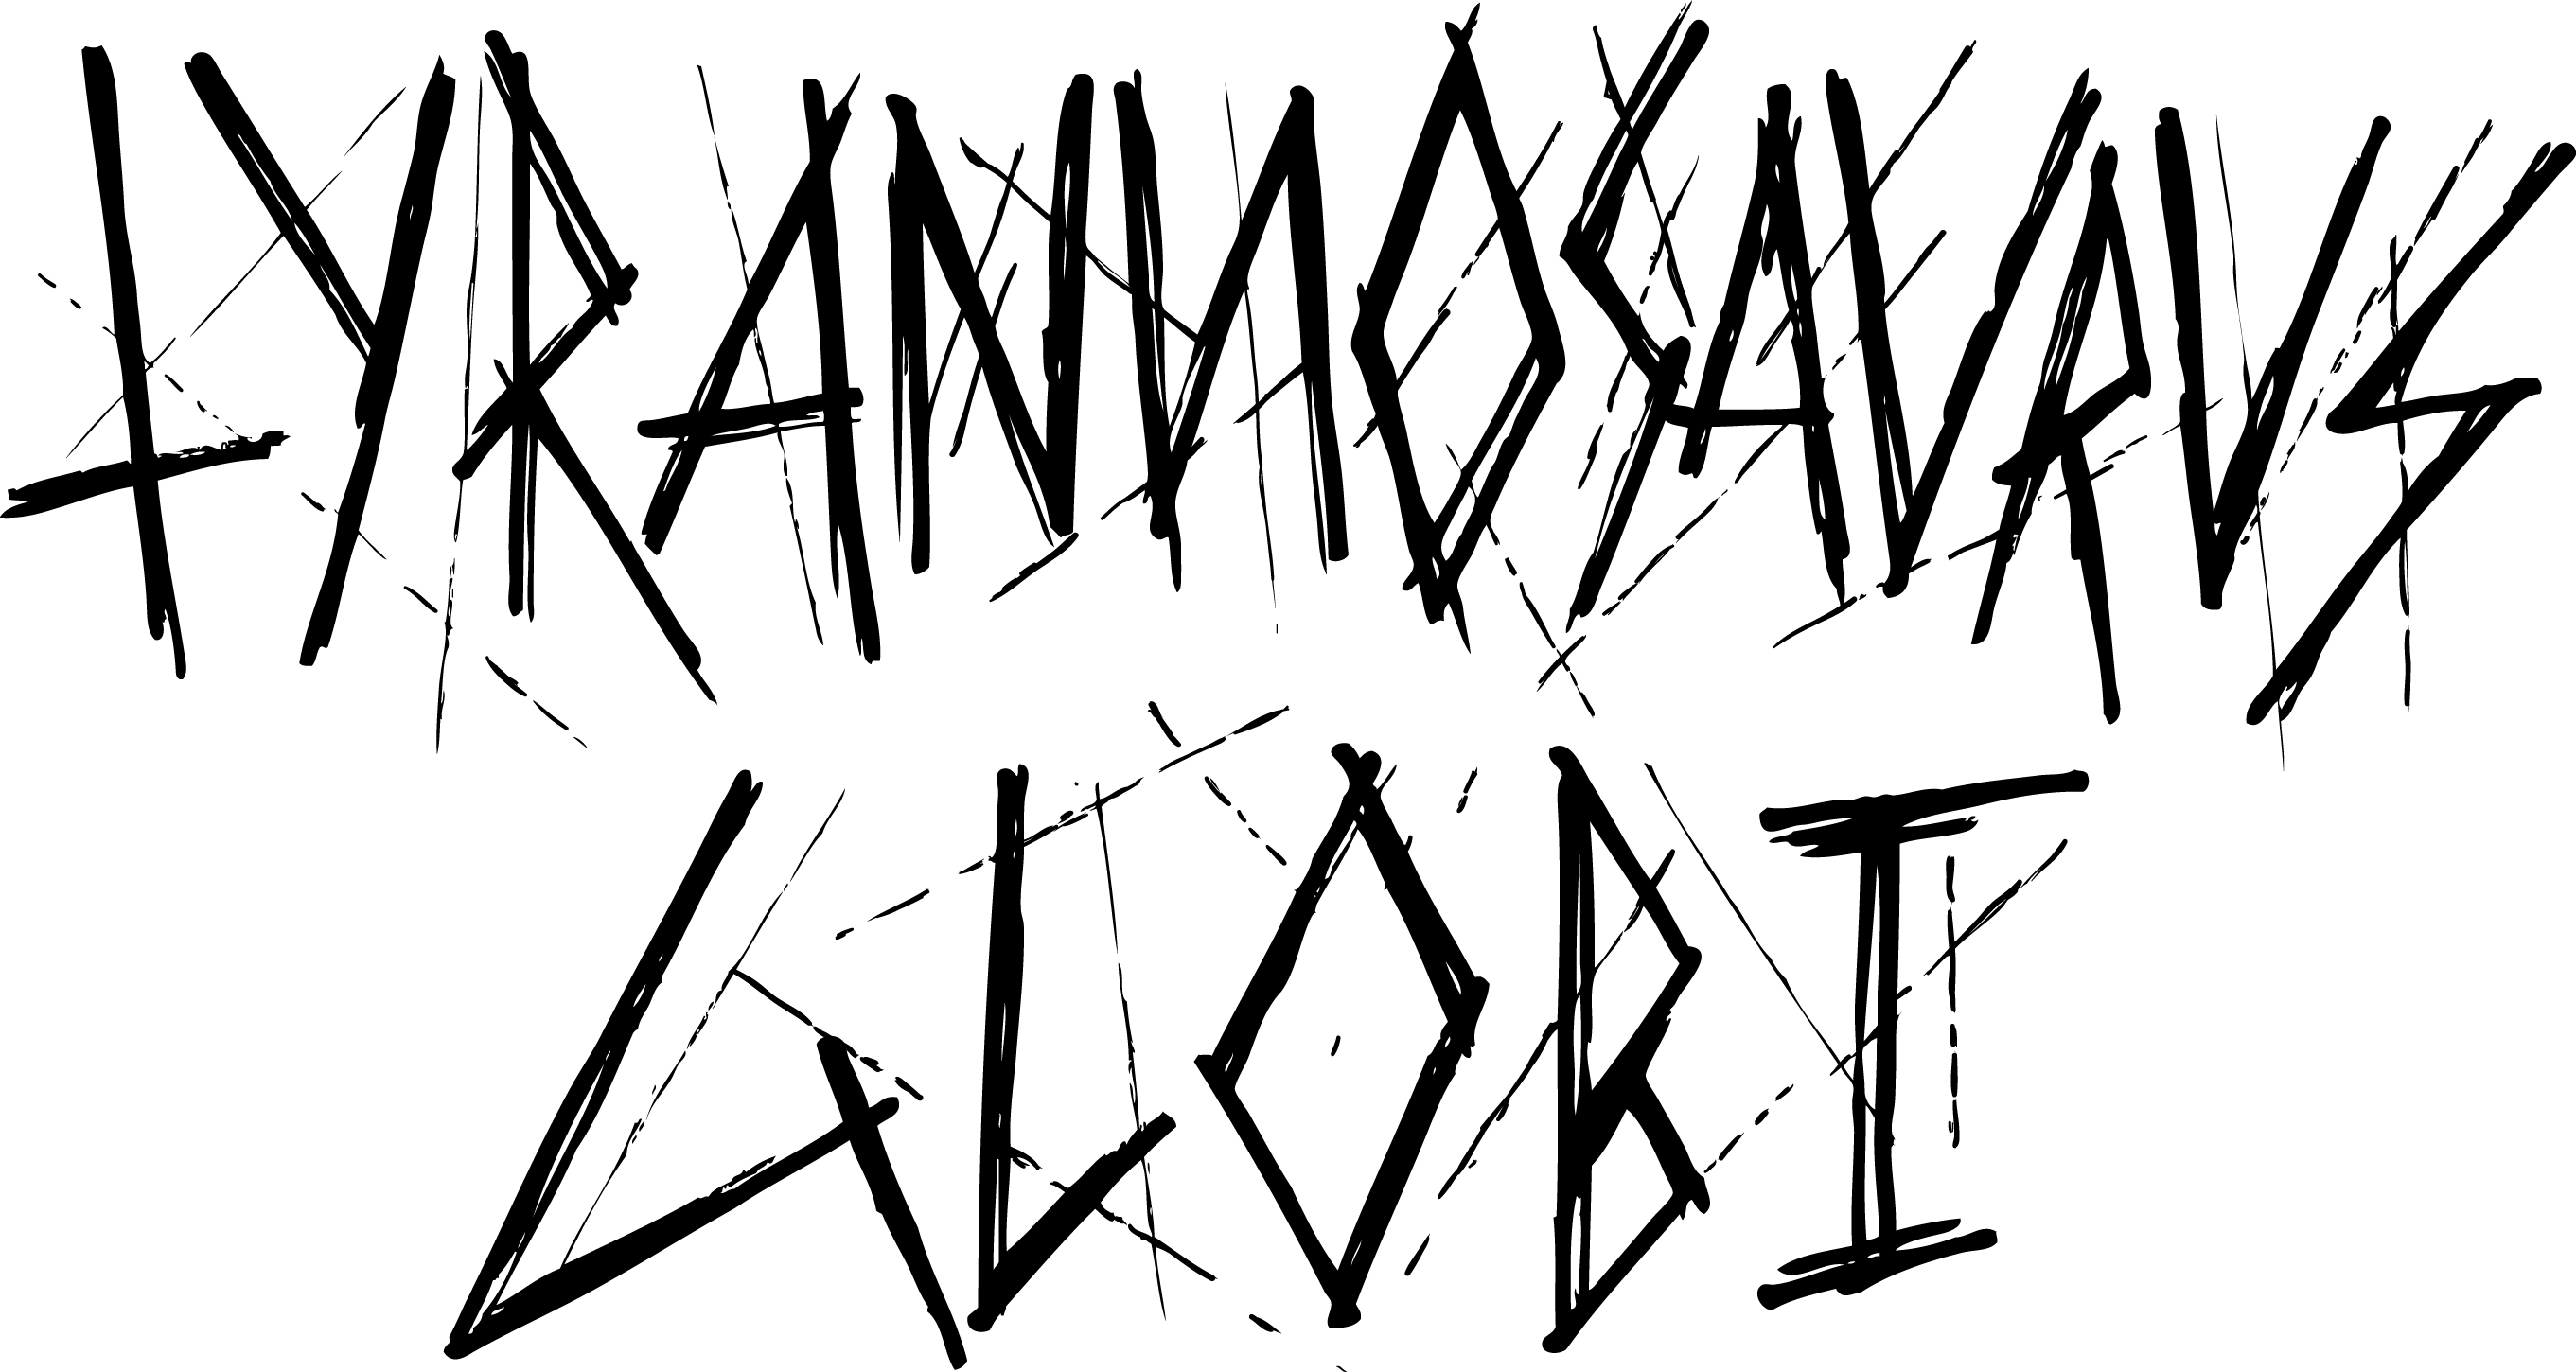 TYRANNOSAURUS
GLOBI